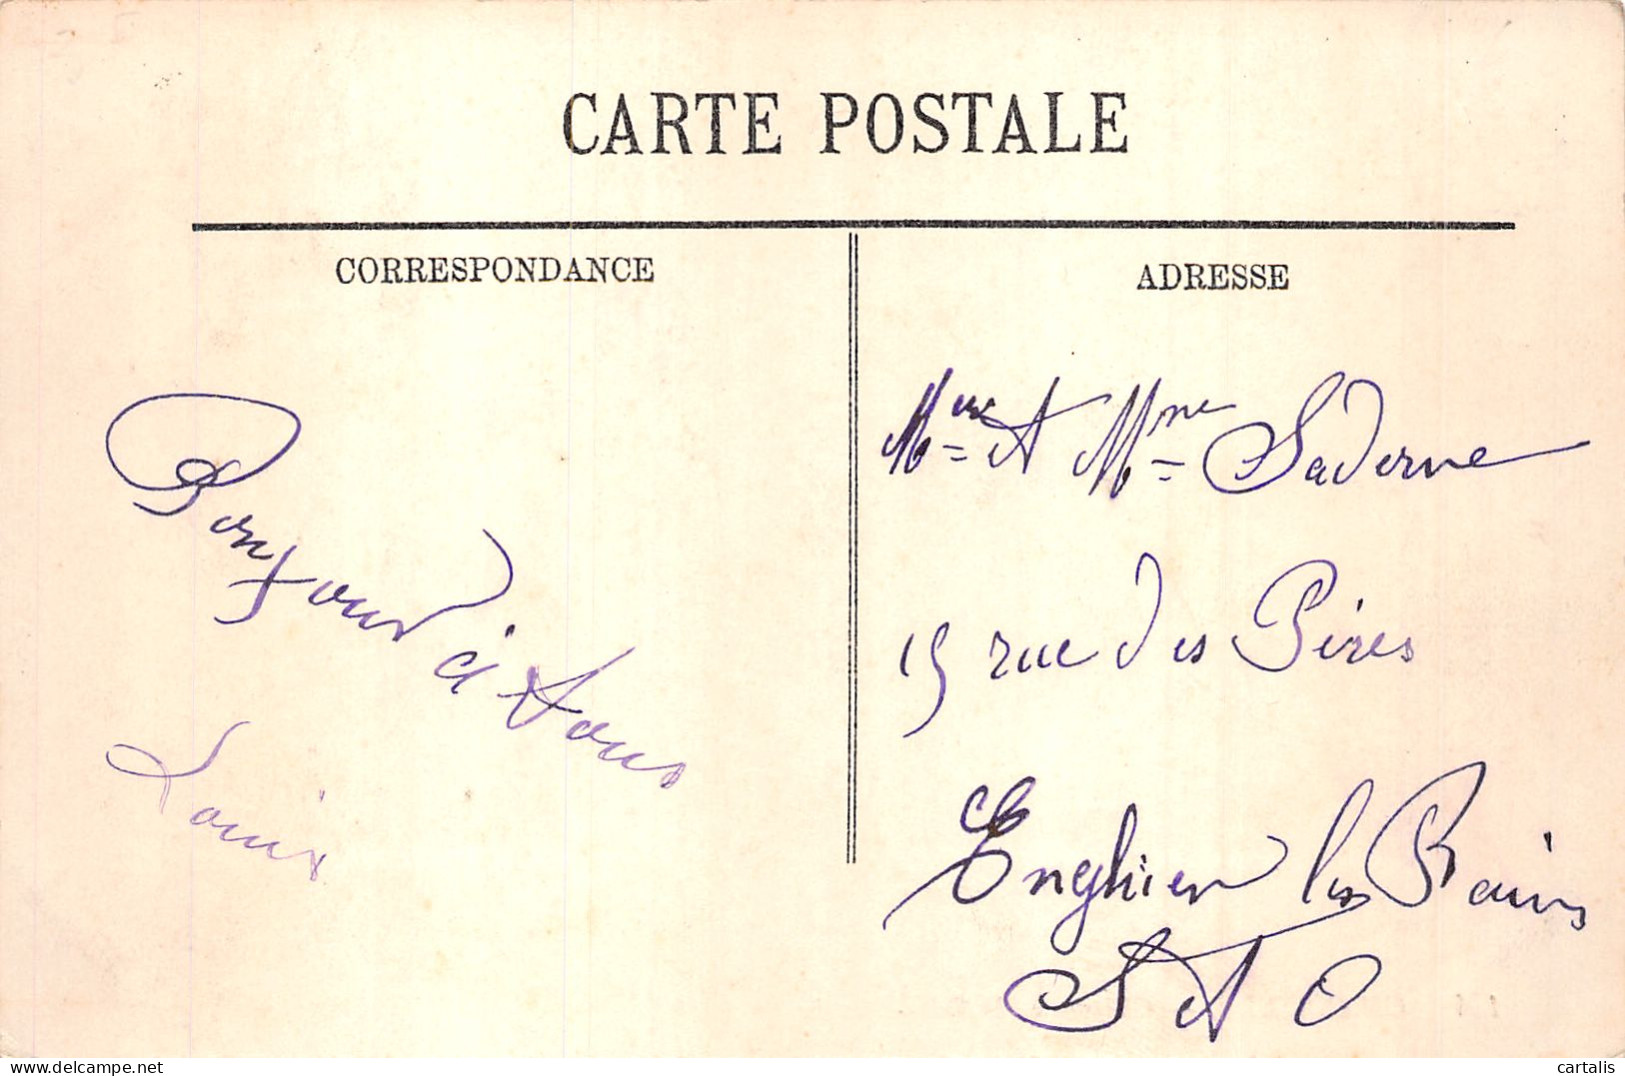 CARTE POSTALE
CORRESPONDANCE
Bonjour à tous
Louis
ADRESSE
Mr et Mme Saderne
15 rue des Pères
Enghien les Bains
S et O
cartalis